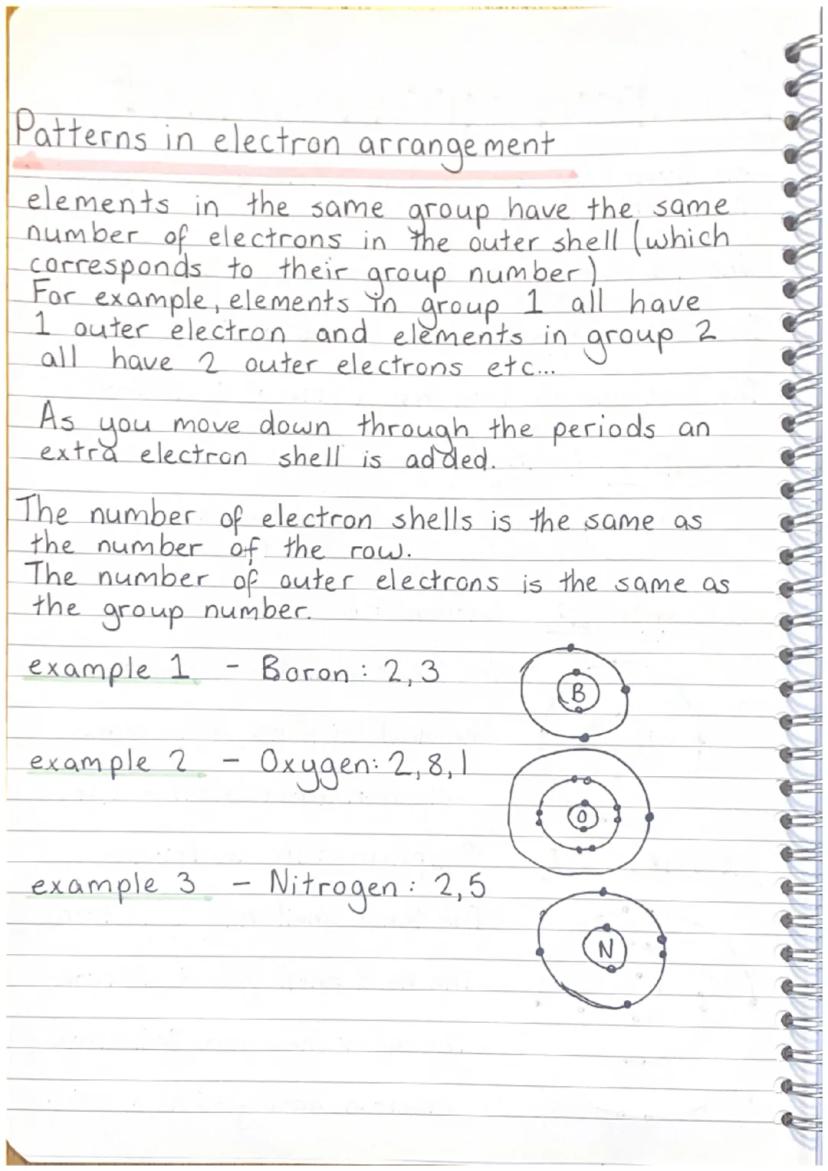 Patterns in electron arrangement
elements in the same group have the same
number of electrons in the outer shell (which
corresponds to their group number)
For example, elements in group 1 all have
1 outer electron and elements in group 2
all have 2 outer electrons etc...
As you move down through the periods an
extra electron shell is added.
The number of electron shells is the same as
the number of the row.
The number of outer electrons is the same as
the group number.
example 1 - Boron : 2,3
B
example 2 - Oxygen: 2,8,1
O
example 3 - Nitrogen : 2,5
N